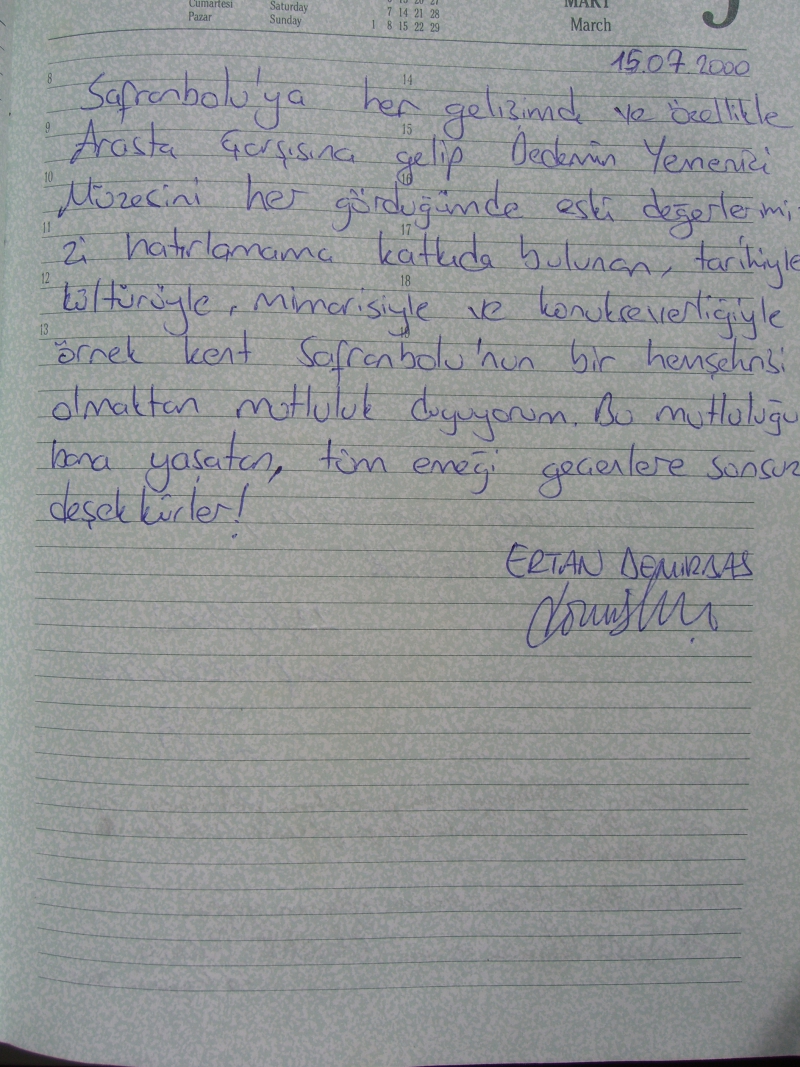 Cumartesi Saturday
Pazar Sunday
7 14 21 28
1 8 15 22 29
MART
March
15.07.2000
8 14
Safranbolu'ya her gelişimde ve özellikle
9 15
Arasta Çarşısına gelip Dedemin Yemenici
10 16
Müzesini her gördüğümde eski değerlerimi-
11 17
zi hatırlamama katkıda bulunan, tarihiyle
12 18
kültürüyle, mimarisiyle ve konukseverliğiyle
13
örnek kent Safranbolu'nun bir hemşehrisi
olmaktan mutluluk duyuyorum. Bu mutluluğu
bana yaşatan, tüm emeği geçenlere sonsuz
deşekkürler!
ERTAN DEMİRBAŞ